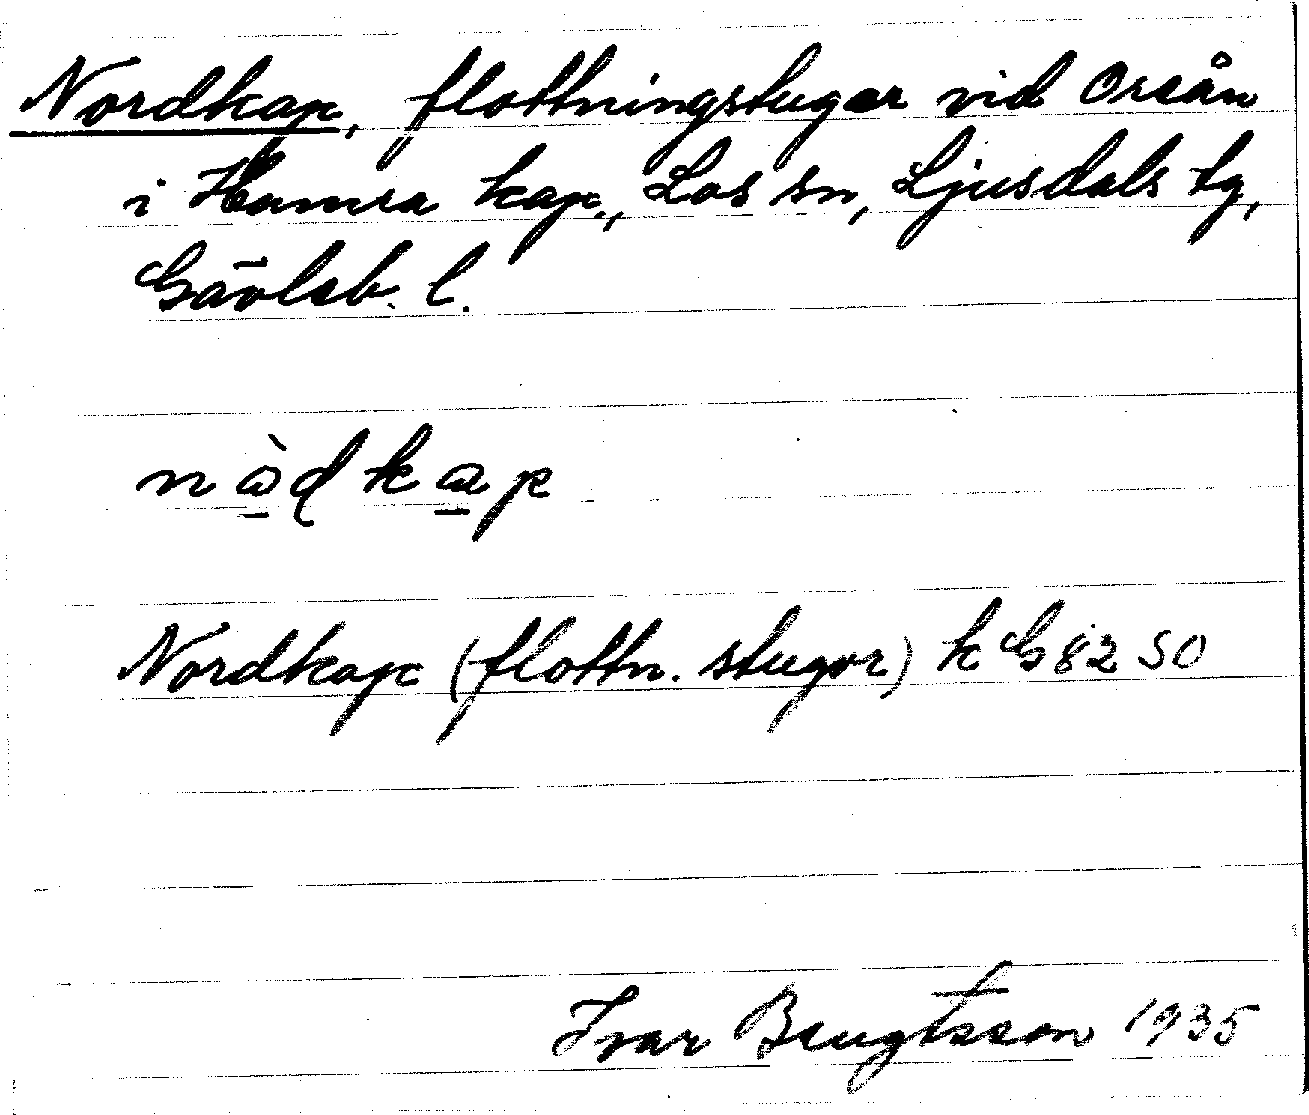 Nordkap, flottningstugor vid Oreån
i Hamra kap., Los sn, Ljusdals tg,
Gävleb. l.
nò̱dka̱p
Nordkap (flottn. stugor) k G 82 SO
Ivar Bengtsson 1935